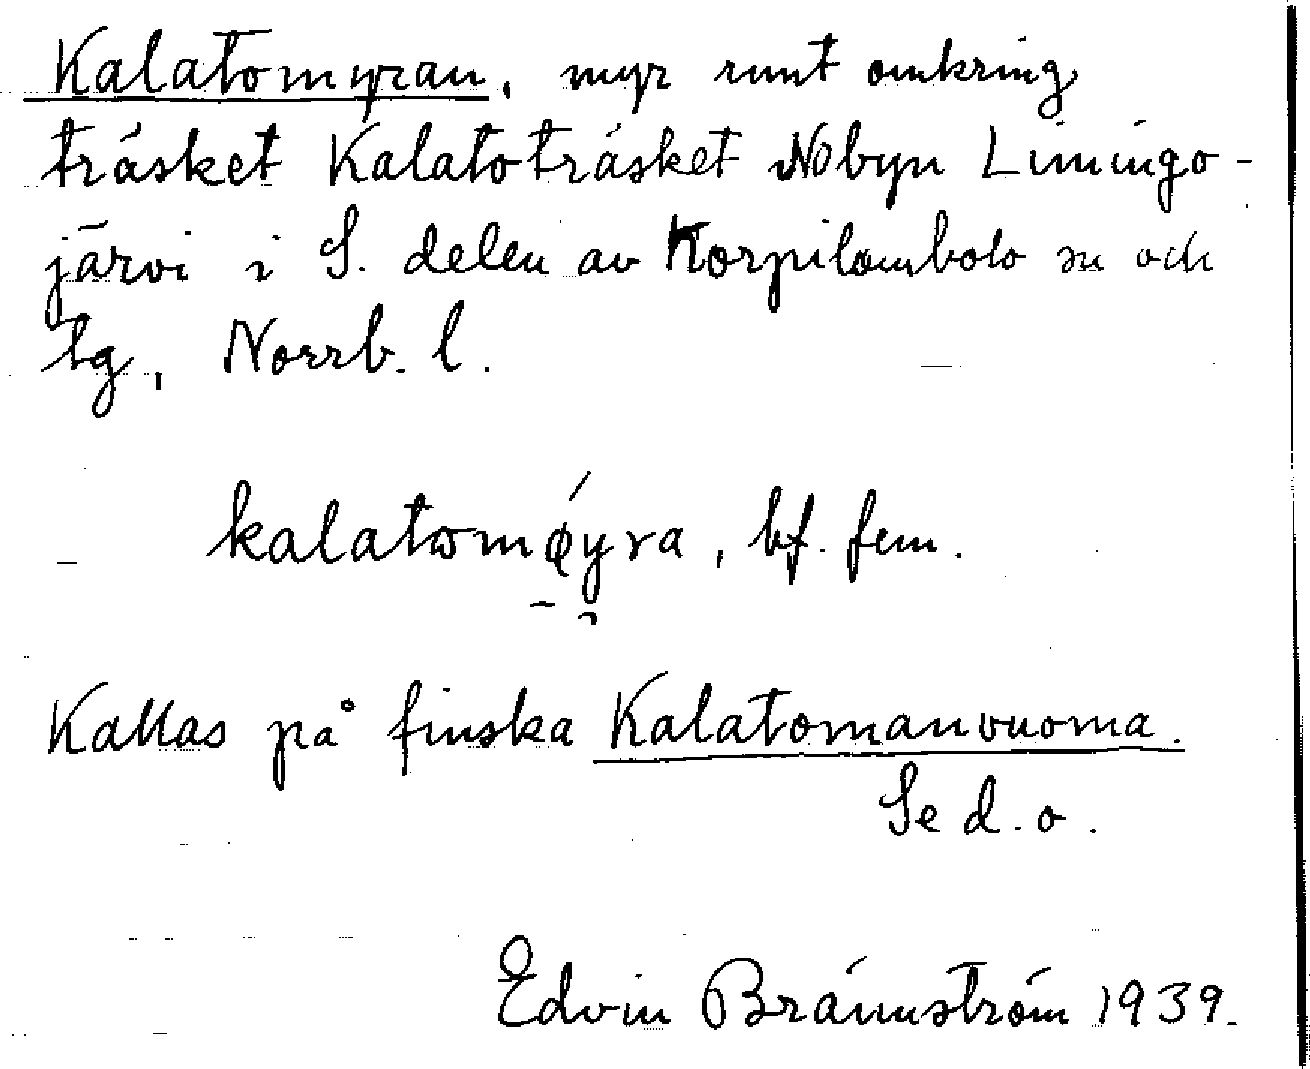 Kalatomyran, myr runt omkring
träsket Kalatoträsket NO byn Limingo-
järvi i S. delen av Korpilombolo sn och
tg, Norrb. l.
kalatomǿyra, bf. fem.
Kallas på finska Kalatomanvuoma.
Se d. o.
Edvin Brännström 1939.